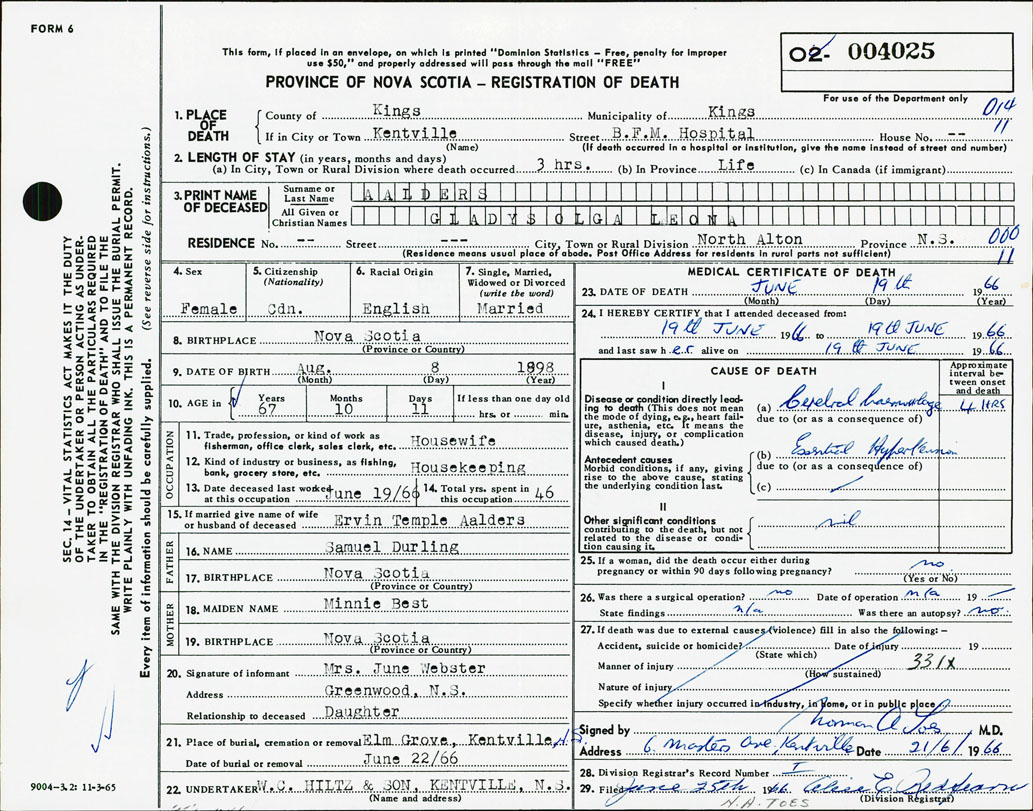 FORM 6
This form, if placed in an envelope, on which is printed "Dominion Statistics – Free, penalty for improper
use $50," and properly addressed will pass through the mail "FREE"
02- 004025
PROVINCE OF NOVA SCOTIA – REGISTRATION OF DEATH
For use of the Department only
1. PLACE OF DEATH
County of Kings Municipality of Kings 014
If in City or Town Kentville Street B.F.M. Hospital House No. -- 11
(Name) (If death occurred in a hospital or institution, give the name instead of street and number)
2. LENGTH OF STAY (in years, months and days)
(a) In City, Town or Rural Division where death occurred 3 hrs. (b) In Province Life (c) In Canada (if immigrant)
3. PRINT NAME OF DECEASED
Surname or Last Name AALDERS
All Given or Christian Names GLADYS OLGA LEONA
RESIDENCE No. -- Street --- City, Town or Rural Division North Alton Province N.S. 000
(Residence means usual place of abode. Post Office Address for residents in rural parts not sufficient) 11
4. Sex
Female
5. Citizenship
(Nationality)
Cdn.
6. Racial Origin
English
7. Single, Married,
Widowed or Divorced
(write the word)
Married
8. BIRTHPLACE Nova Scotia
(Province or Country)
9. DATE OF BIRTH Aug. 8 1898
(Month) (Day) (Year)
10. AGE in
Years Months Days If less than one day old
67 10 11 hrs. or min.
OCCUPATION
11. Trade, profession, or kind of work as
fisherman, office clerk, sales clerk, etc. Housewife
12. Kind of industry or business, as fishing,
bank, grocery store, etc. Housekeeping
13. Date deceased last worked
at this occupation June 19/66
14. Total yrs. spent in
this occupation 46
15. If married give name of wife
or husband of deceased Ervin Temple Aalders
FATHER
16. NAME Samuel Durling
17. BIRTHPLACE Nova Scotia
(Province or Country)
MOTHER
18. MAIDEN NAME Minnie Best
19. BIRTHPLACE Nova Scotia
(Province or Country)
20. Signature of informant Mrs. June Webster
Address Greenwood, N.S.
Relationship to deceased Daughter
21. Place of burial, cremation or removal Elm Grove, Kentville, N.S.
Date of burial or removal June 22/66
22. UNDERTAKER W.C. HILTZ & SON, KENTVILLE, N.S.
(Name and address)
MEDICAL CERTIFICATE OF DEATH
23. DATE OF DEATH JUNE 19th 1966
(Month) (Day) (Year)
24. I HEREBY CERTIFY that I attended deceased from:
19th JUNE 1966 to 19th JUNE 1966
and last saw h er alive on 19th JUNE 1966
CAUSE OF DEATH
Approximate
interval be-
tween onset
and death
I
Disease or condition directly lead-
ing to death (This does not mean
the mode of dying, e.g., heart fail-
ure, asthenia, etc. It means the
disease, injury, or complication
which caused death.)
(a) Cerebral haemorrhage 4 HRS
due to (or as a consequence of)
Antecedent causes
Morbid conditions, if any, giving
rise to the above cause, stating
the underlying condition last.
(b) Essential Hypertension
due to (or as a consequence of)
(c)
II
Other significant conditions
contributing to the death, but not
related to the disease or condi-
tion causing it.
nil
25. If a woman, did the death occur either during
pregnancy or within 90 days following pregnancy? no
(Yes or No)
26. Was there a surgical operation? no Date of operation n/a 19 –
State findings n/a Was there an autopsy? no
27. If death was due to external causes (violence) fill in also the following: –
Accident, suicide or homicide? Date of injury 19
(State which)
Manner of injury 331X
(How sustained)
Nature of injury
Specify whether injury occurred in industry, in home, or in public place
Signed by Norman A Toes M.D.
Address 6 Masters Ave, Kentville Date 21/6/1966
28. Division Registrar's Record Number I
29. Filed June 25th 1966
(Division Registrar)
N.A. TOES
SEC. 14 – VITAL STATISTICS ACT MAKES IT THE DUTY
OF THE UNDERTAKER OR PERSON ACTING AS UNDER-
TAKER TO OBTAIN ALL THE PARTICULARS REQUIRED
IN THE "REGISTRATION OF DEATH" AND TO FILE THE
SAME WITH THE DIVISION REGISTRAR WHO SHALL ISSUE THE BURIAL PERMIT.
WRITE PLAINLY WITH UNFADING INK. THIS IS A PERMANENT RECORD.
Every item of information should be carefully supplied. (See reverse side for instructions.)
9004-3.2: 11-3-65